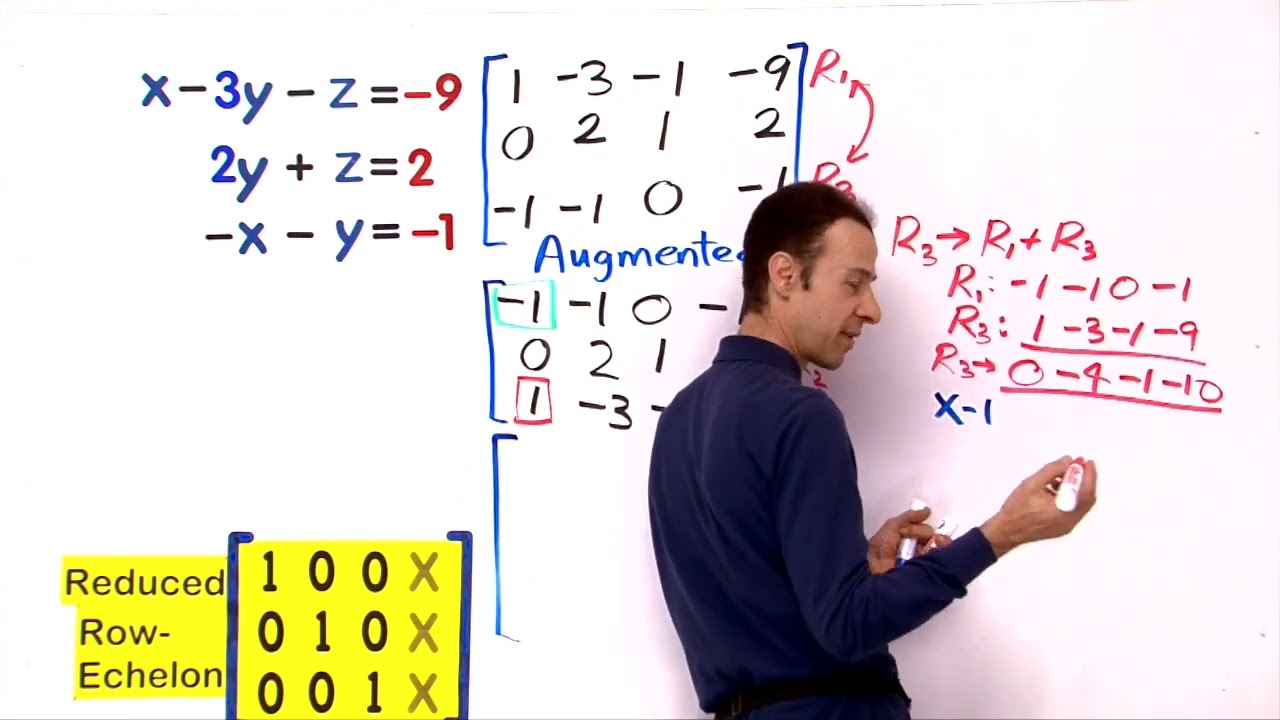 x-3y-z=-9
2y+z=2
-x-y=-1
1 -3 -1 -9 R₁
0 2 1 2
-1 -1 0 -1 R₃
Augmente
-1 -1 0 -
0 2 1
1 -3 -
R₃→R₁+R₃
R₁: -1 -1 0 -1
R₃: 1 -3 -1 -9
R₃→ 0 -4 -1 -10
X-1
Reduced
Row-
Echelon
1 0 0 X
0 1 0 X
0 0 1 X